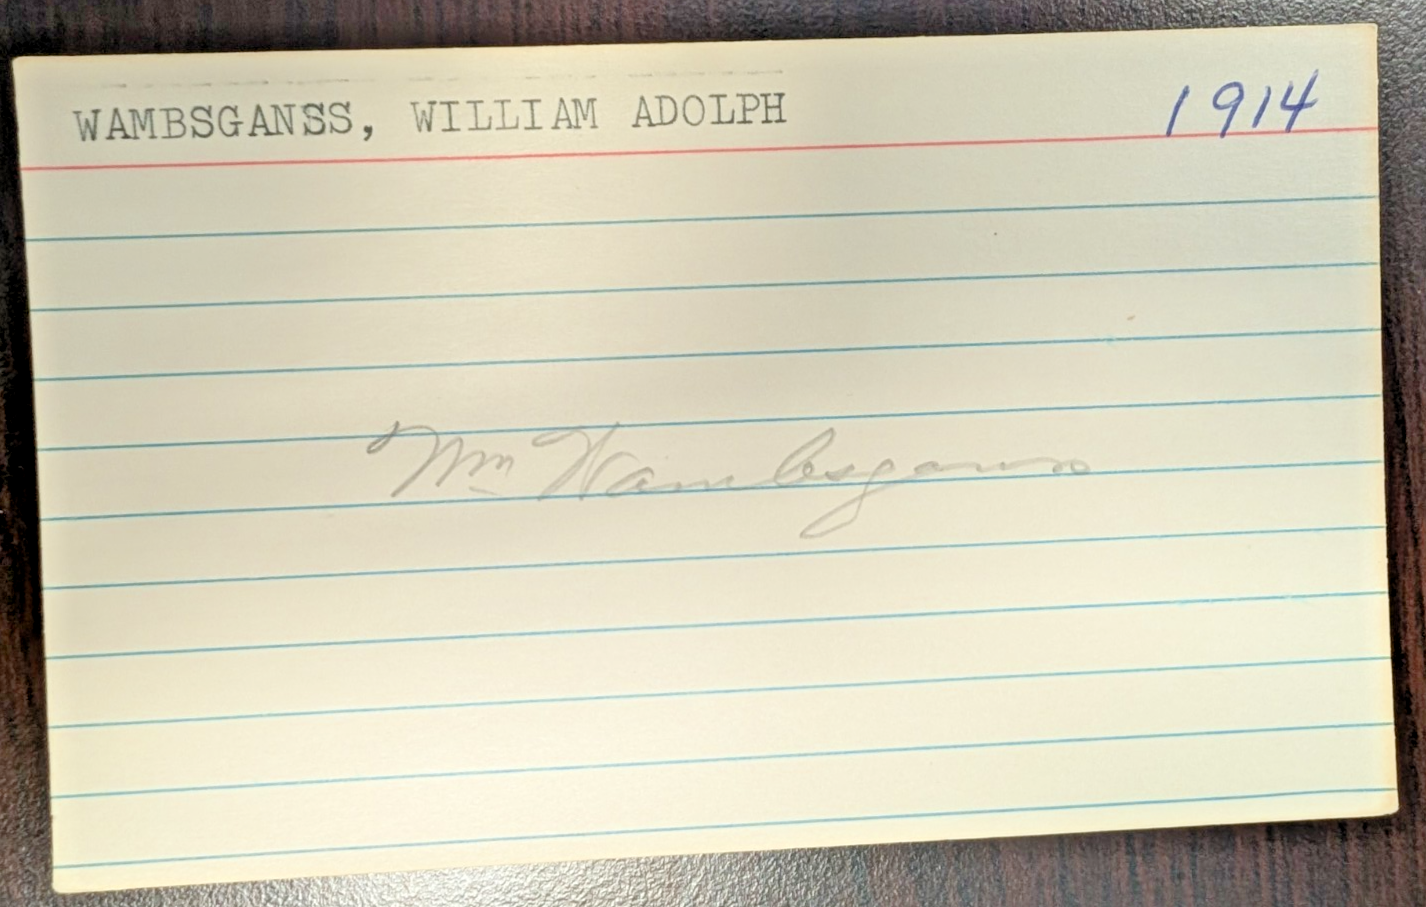 WAMBSGANSS, WILLIAM ADOLPH 1914
Wm Wambsganss